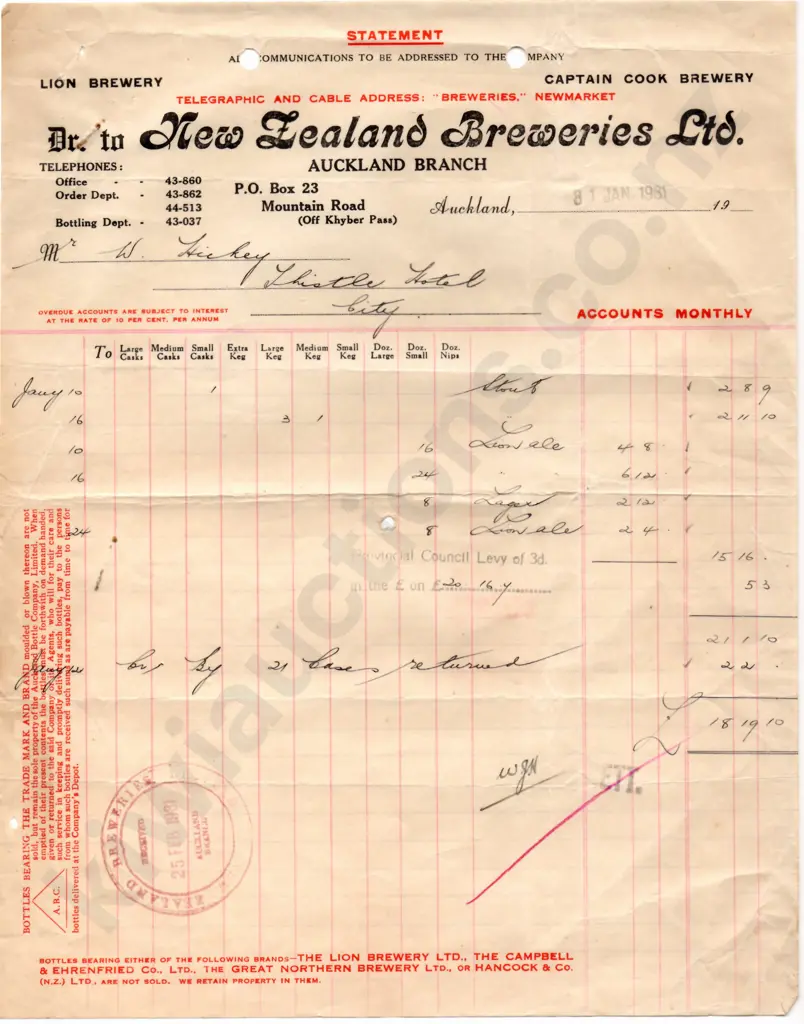 STATEMENT
COMMUNICATIONS TO BE ADDRESSED TO THE MPANY
LION BREWERY
CAPTAIN COOK BREWERY
TELEGRAPHIC AND CABLE ADDRESS: "BREWERIES," NEWMARKET
Dr. to New Zealand Breweries Ltd.
AUCKLAND BRANCH
TELEPHONES:
Office - - 43-860
Order Dept. - 43-862
44-513
Bottling Dept. - 43-037
P.O. Box 23
Mountain Road
(Off Khyber Pass)
Auckland, 31 JAN 1931 19
Mr W. Hickey
Thistle Hotel
City
OVERDUE ACCOUNTS ARE SUBJECT TO INTEREST
AT THE RATE OF 10 PER CENT. PER ANNUM
ACCOUNTS MONTHLY
To Large Casks Medium Casks Small Casks Extra Keg Large Keg Medium Keg Small Keg Doz. Large Doz. Small Doz. Nips
Jany 10 1 Stout 2 8 9
16 3 1 2 11 10
10 16 Lion ale 4 8
16 24 " " 6 12
8 Lager 2 12
24 8 Lion ale 2 4
Provincial Council Levy of 3d. 15 16
in the £ on £20 16 7 5 3
21 1 10
Jany By 21 Cases returned 2 2
£ 18 19 10
WJH
BOTTLES BEARING THE TRADE MARK AND BRAND moulded or blown thereon are not
sold, but remain the sole property of the Auckland Bottle Company, Limited. When
emptied of their present contents the bottles must be forthwith on demand handed,
given or returned to the said Company or its Agents, who will for their care and
such service in keeping and promptly delivering such bottles, pay to the persons
from whom such bottles are received such sums as are payable from time to time for
bottles delivered at the Company's Depot.
A.B.C.
BREWERIES
RECEIVED
25 FEB 1931
AUCKLAND
BRANCH
ZEALAND
BOTTLES BEARING EITHER OF THE FOLLOWING BRANDS—THE LION BREWERY LTD., THE CAMPBELL
& EHRENFRIED Co., LTD., THE GREAT NORTHERN BREWERY LTD., OR HANCOCK & Co.
(N.Z.) LTD., ARE NOT SOLD. WE RETAIN PROPERTY IN THEM.
kiwiauctions.co.nz